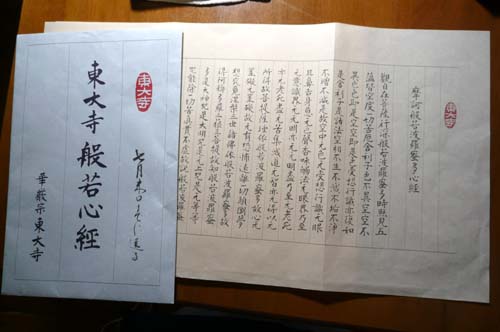 東大寺
摩訶般若波羅蜜多心經
觀自在菩薩行深般若波羅蜜多時照見五
蘊皆空度一切苦厄舍利子色不異空空不
異色色即是空空即是色受想行識亦復如
是舍利子是諸法空相不生不滅不垢不淨
不增不減是故空中无色无受想行識无眼
耳鼻舌身意无色聲香味觸法无眼界乃至
无意識界无无明亦无无明盡乃至无老死
亦无老死盡无苦集滅道无智亦无得以无
所得故菩提薩埵依般若波羅蜜多故心无
罣礙无罣礙故无有恐怖遠離一切顛倒夢
想究竟涅槃三世諸佛依般若波羅蜜多故
得阿耨多羅三藐三菩提故知般若波羅蜜
多是大神咒是大明咒是无上咒是无等等
咒能除一切苦真實不虛故說般若波羅蜜
東大寺
七月末日
東大寺般若心經
華嚴宗東大寺